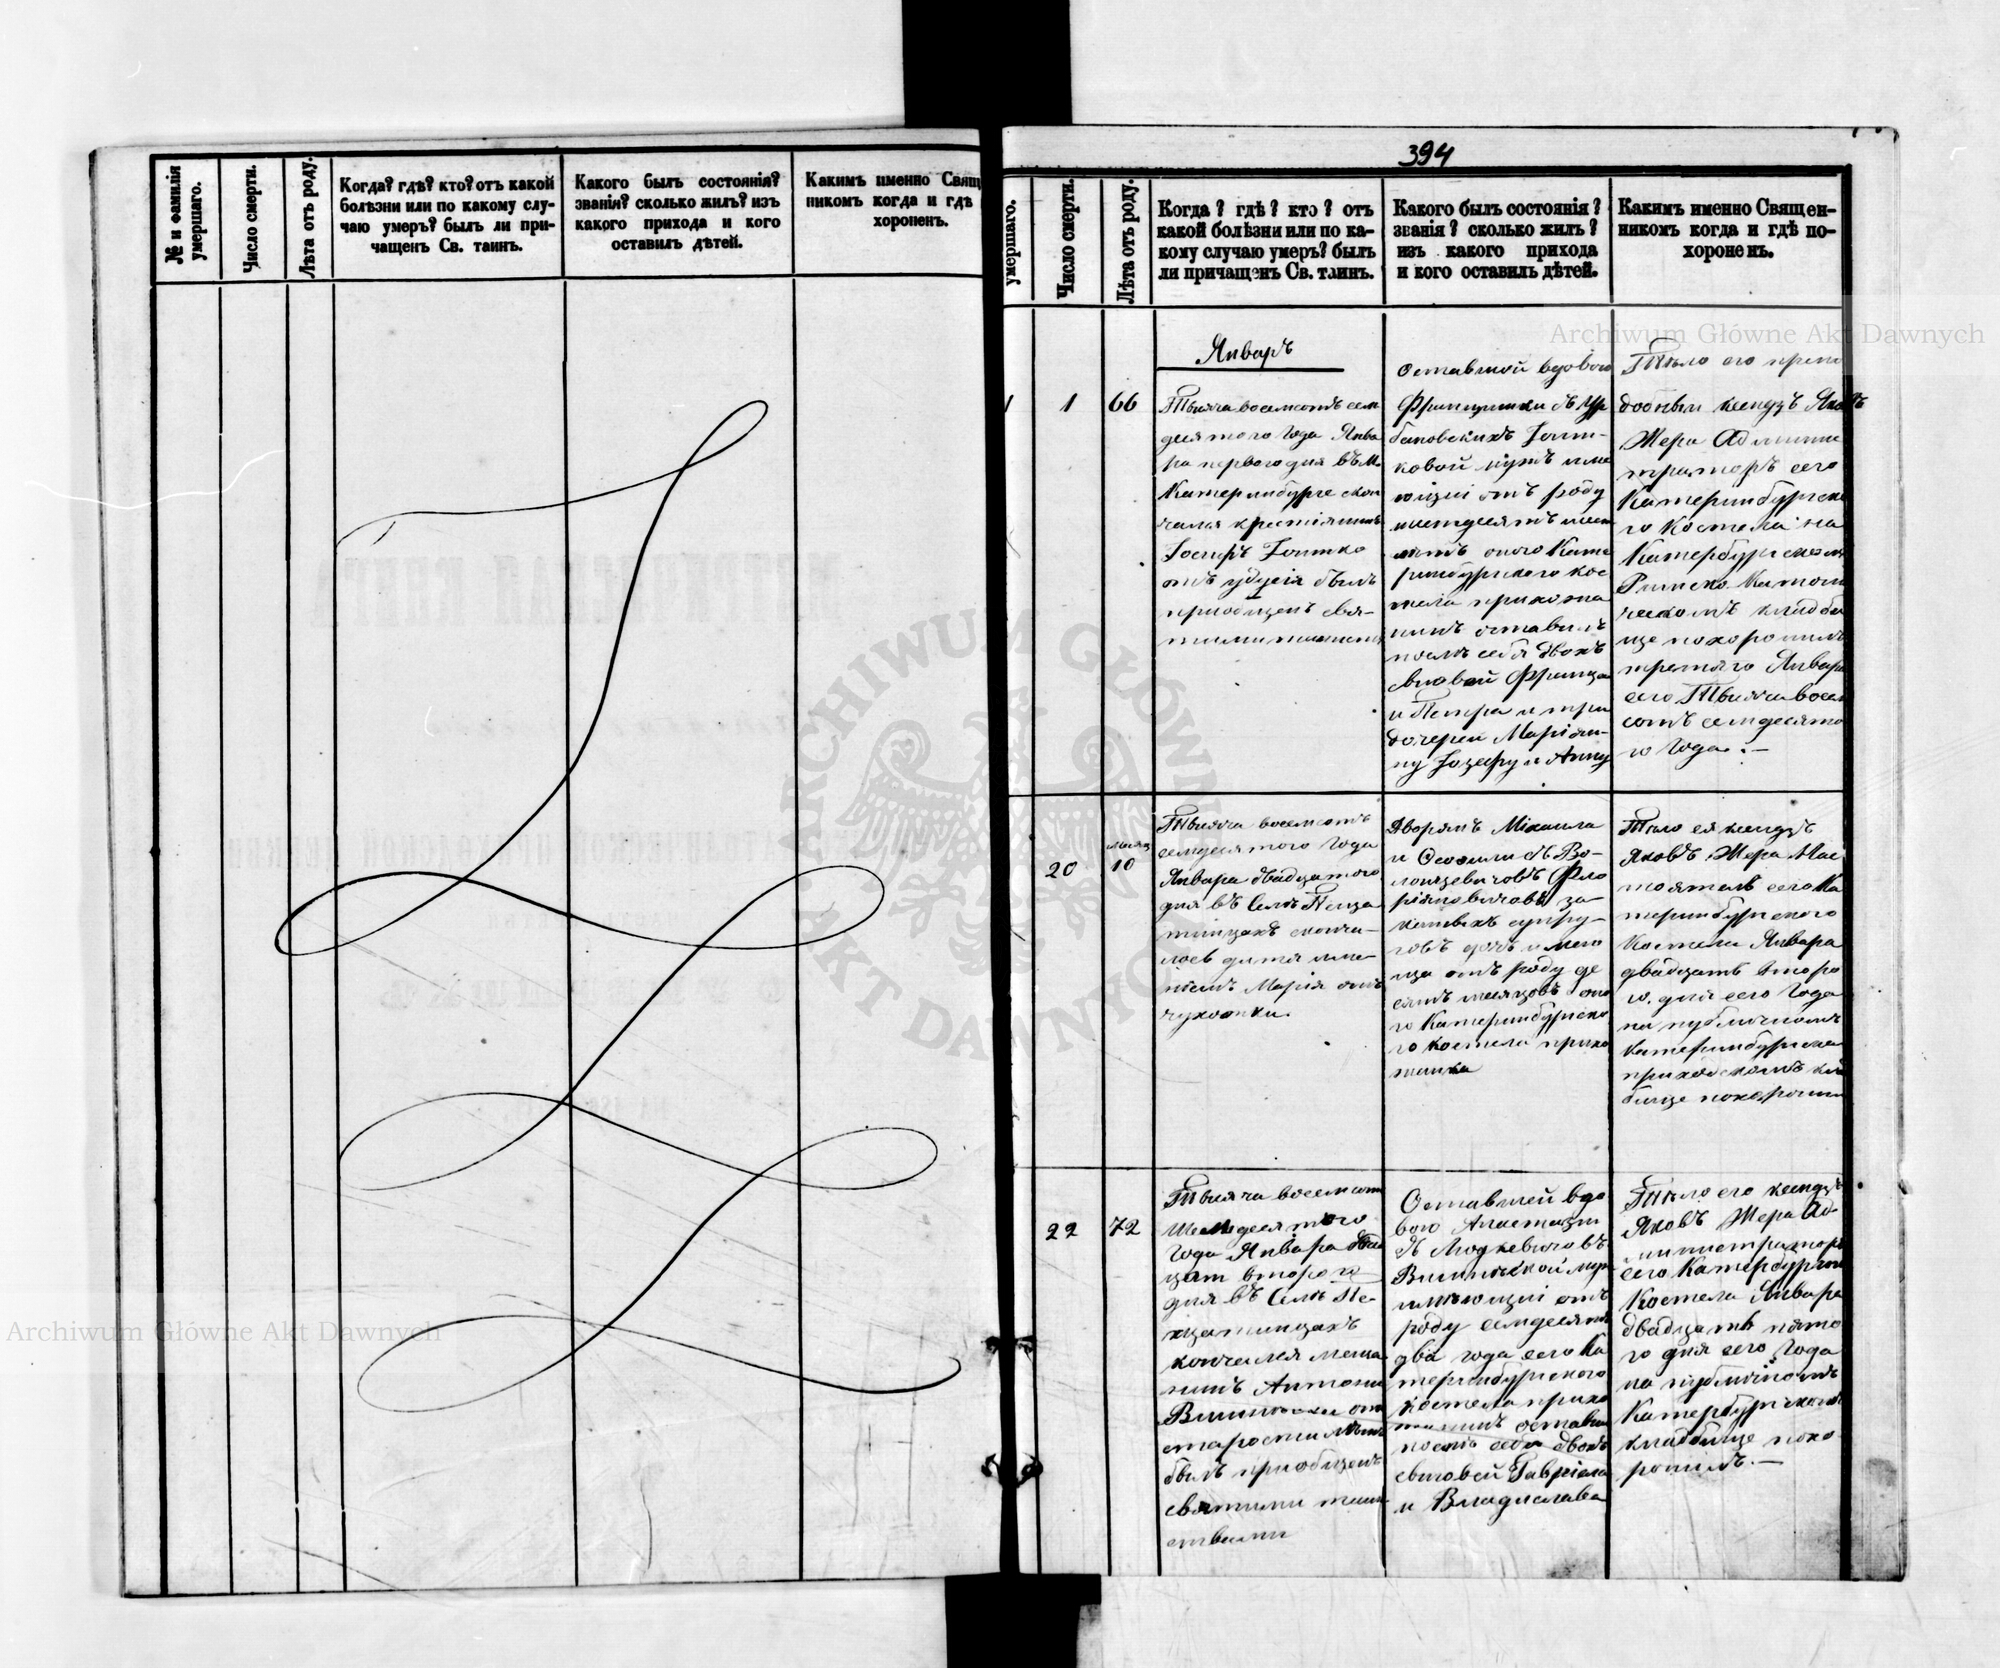 № и фамилія умершаго.
Число смерти.
Лѣта отъ роду.
Когда? гдѣ? кто? отъ какой
болѣзни или по какому слу-
чаю умеръ? былъ ли при-
чащенъ Св. таинъ.
Какого былъ состоянія?
званія? сколько жилъ? изъ
какого прихода и кого
оставилъ дѣтей.
Какимъ именно Свящ
никомъ когда и гдѣ
хороненъ.
394
умершаго.
Число смерти.
Лѣта отъ роду.
Когда? гдѣ? кто? отъ
какой болѣзни или по ка-
кому случаю умеръ? былъ
ли причащенъ Св. таинъ.
Какого былъ состоянія?
званія? сколько жилъ?
изъ какого прихода
и кого оставилъ дѣтей.
Какимъ именно Священ-
никомъ когда и гдѣ по-
хороненъ.
Январъ
1
66
Тысяча восемсотъ сем
десятого Года Янва
ра первого дня въ М.
Катеринбурге скон
чался крестіянинъ
Іосифъ
былъ
приобщенъ свя-
тыми
Оставшой вдовою
Францишки съ Ур
бановскихъ
ковой мужъ име
ющій отъ роду
шестдесятъ шест
лѣтъ оного Кате
ринбурского кос
тела прихожа
нинъ оставилъ
послѣ себя двохъ
сыновей Франца
и Петра и три
дочереи Маріян-
ну Іозефу и Анну
Тѣло его препо
добный ксендзъ Яковъ
Жера Админи
траторъ сего
Катеринбурско
го Костела на
Римско Католи
ческомъ кладби
ще похоронилъ
третяго Января
сего Тысяча восем
сотъ семдесято
го Года. —
20
месяц
10
Тысяча восемсотъ
семдесятого Года
Января двадцатого
дня въ Селѣ
скончи-
лось дитя име-
немъ Марія отъ
сухотки.
Дворянъ Михаила
и съ Во-
за-
конныхъ супру-
говъ дочъ имею
ща отъ роду де
сять месяцовъ оно
го Катеринбурско
го костела прихо
жанка
Тѣло ея ксендзъ
Яковъ Жера Нас
тоятель сего Ка
теринбурского
Костела Января
двадцать второ
го дня сего Года
на публичномъ
Катеринбурском
приходскомъ кла
бище похоронил
22
72
Тысяча восемсот
семдесятого
Года Января двад
цать второго
дня въ Селѣ Пе-
кончился меща
нинъ Антони
отъ
старости лѣтъ
былъ приобщенъ
святыми таин
ствами
Оставшей вдо
вою Анастазіи
муж
имѣющій отъ
роду семдесятъ
два года сего Ка
теринбурского
костела прихо
жанинъ оставил
послѣ себя двохъ
сыновей Гавріела
и Владислава
Тѣло его ксендзъ
Яковъ Жера Ад-
министраторъ
сего Катербургского
Костела Января
двадцать пято
го дня сего Года
на публичномъ
Катербургскомъ
кладбище похо-
ронилъ. —
Archiwum Główne Akt Dawnych
Archiwum Główne Akt Dawnych
ARCHIWUM GŁÓWNE AKT DAWNYCH